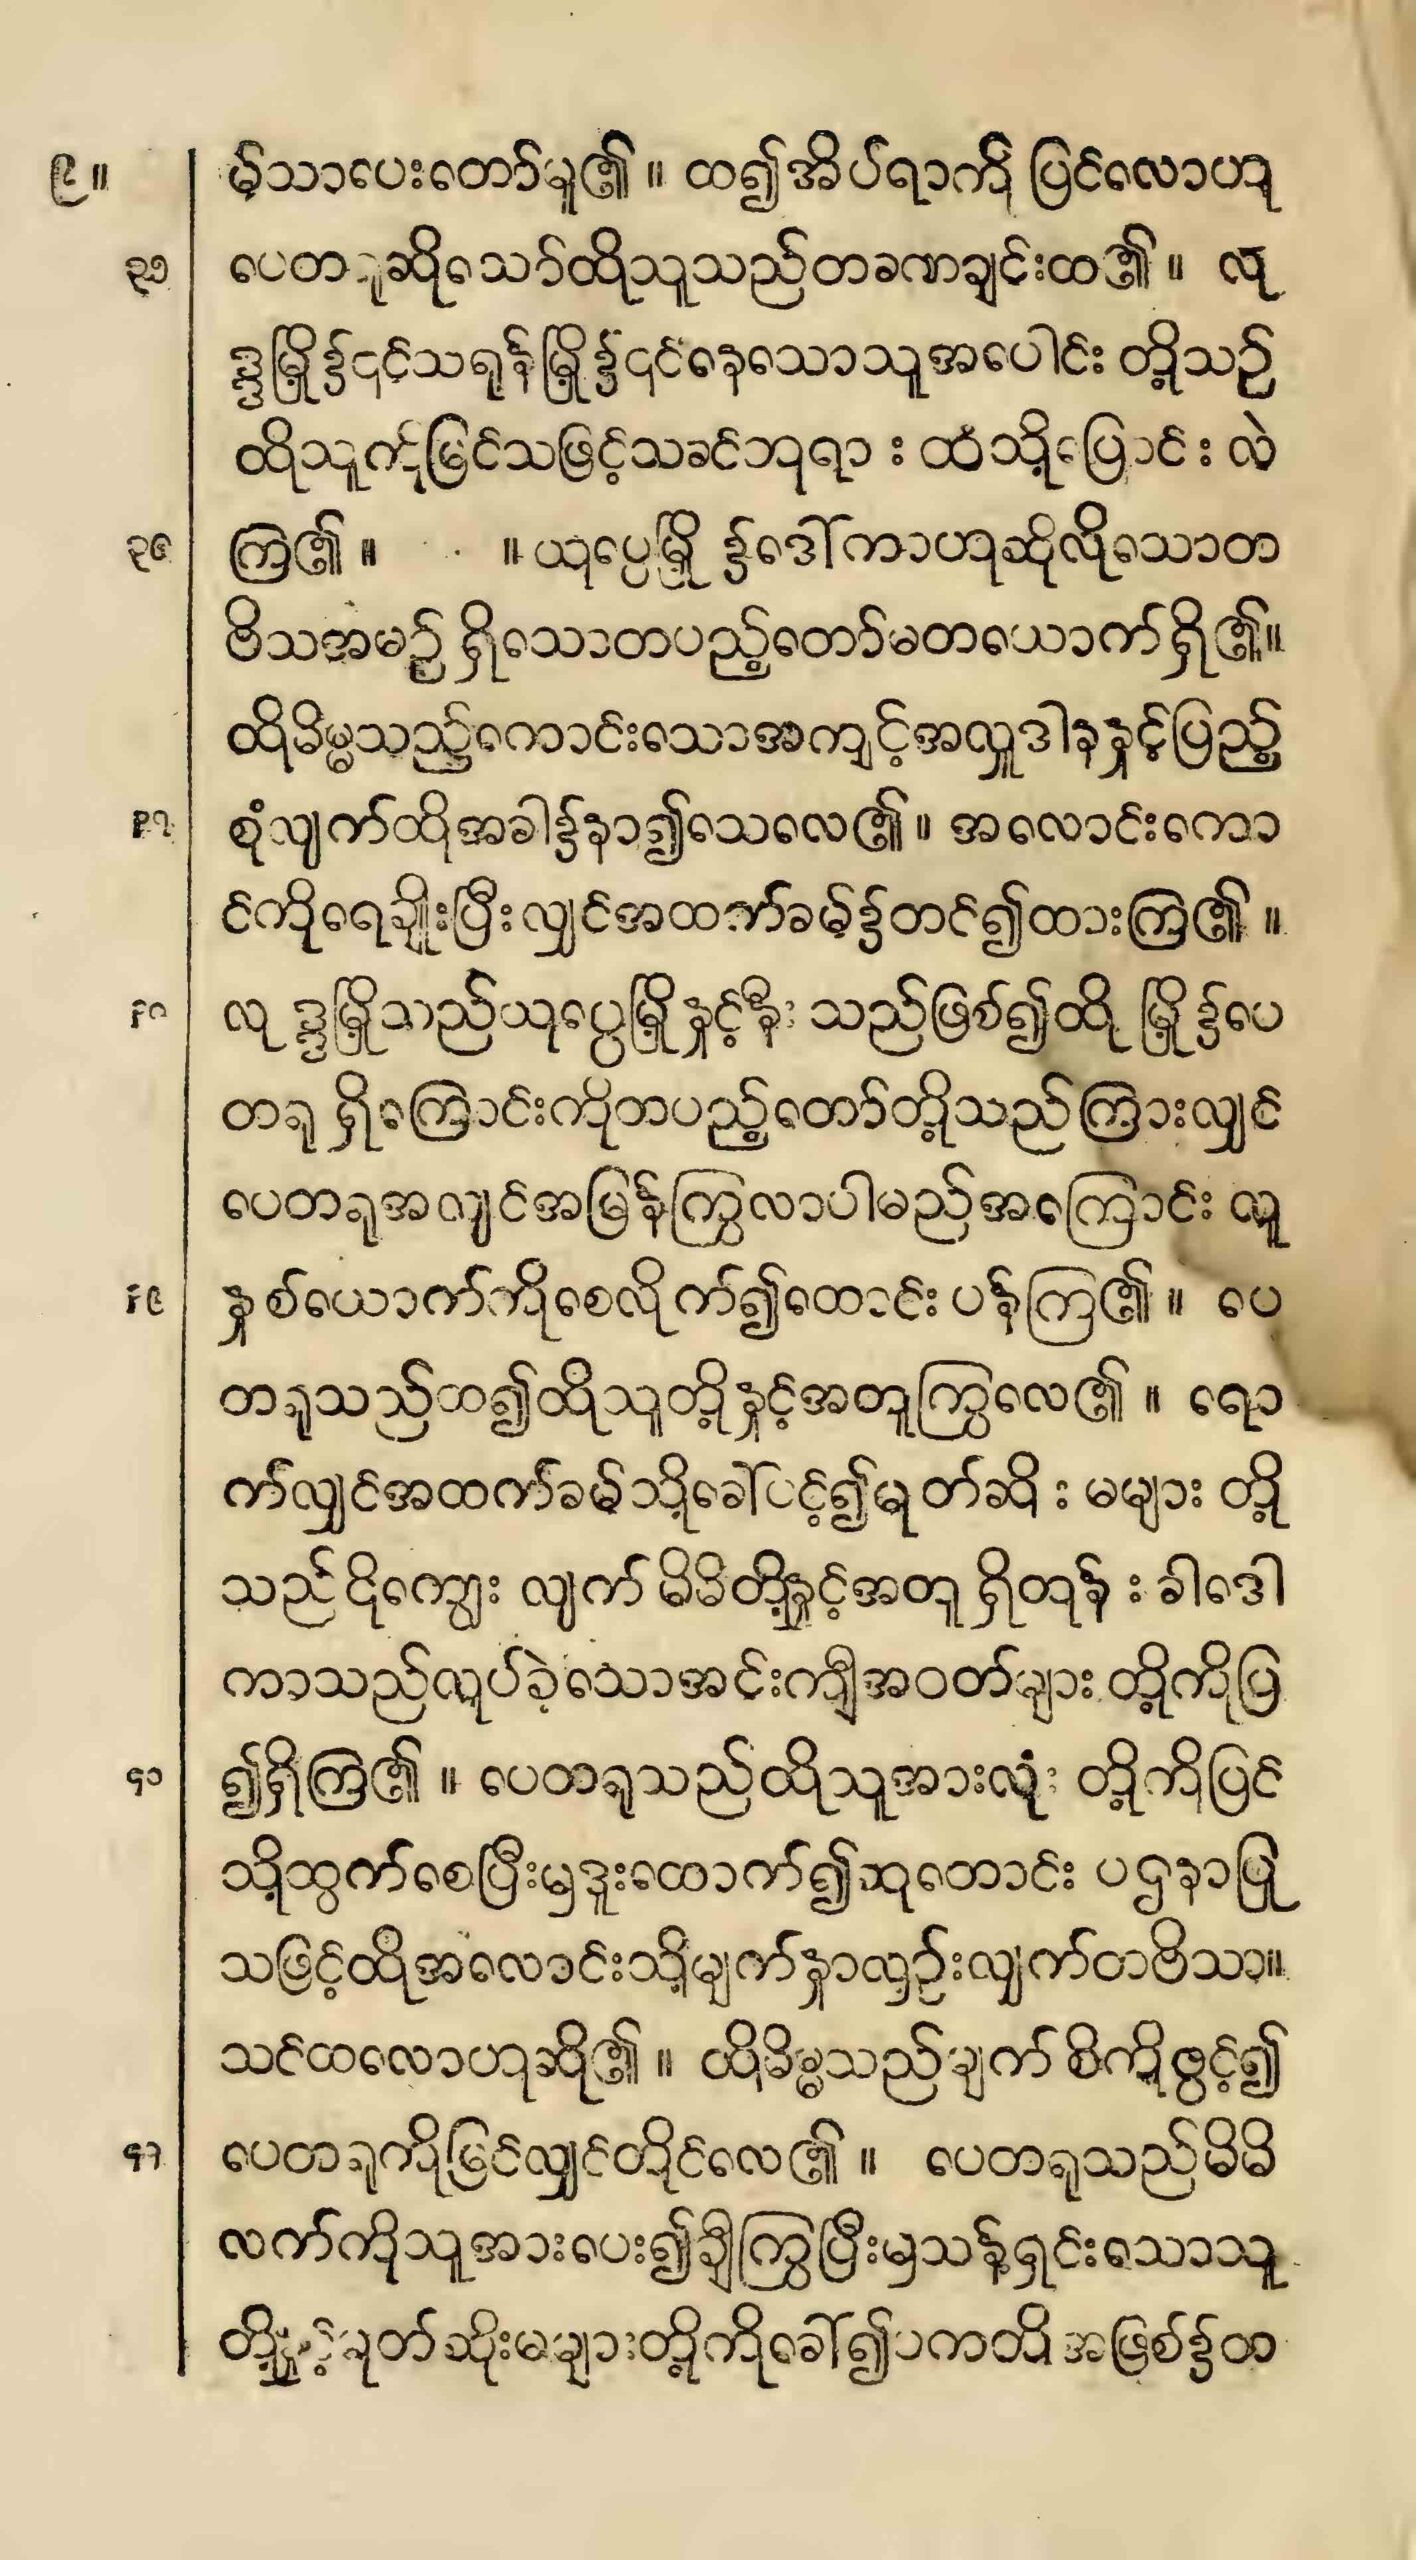 ၉။ မ့်သာပေးတော်မူ၏။ ထ၍အိပ်ရာကို ပြင်လောဟု
၃၅ ပေတရုဆိုသော်ထိုသူသည်တခဏချင်းထ၏။ လု
ဒ္ဒမြို့၌၎င့်သရုန်မြို့၌၎င်နေသောသူအပေါင်း တို့သည်
ထိုသူကိုမြင်သဖြင့်သခင်ဘုရား ထံသို့ပြောင်း လဲ
၃၆ ကြ၏။ ။ယုပ္ပေမြို့ ၌ဒေါ်ကာဟုဆိုလိုသောတ
ဗိသအမည် ရှိသောတပည့်တော်မတယောက်ရှိ၏။
ထိုမိမ္မသည်ကောင်းသောအကျင့်အလှူဒါနနှင့်ပြည့်
၃၇ စုံလျက်ထိုအခါ၌နာ၍သေလေ၏။ အလောင်းကော
င်ကိုရေချိုးပြီးလျှင်အထက်ခမ့်၌တင်၍ထားကြ၏။
၃၈ လု ဒ္ဒမြို့သည်ယုပ္ပေမြို့နှင့်နီး သည်ဖြစ်၍ထို မြို့၌ပေ
တရု ရှိကြောင်းကိုတပည့်တော်တို့သည်ကြားလျှင်
ပေတရုအလျင်အမြန်ကြွလာပါမည်အကြောင်း လူ
၃၉ နှစ်ယောက်ကိုစေလိုက်၍တောင်းပန်ကြ၏။ ပေ
တရုသည်ထ၍ထိုသူတို့နှင့်အတူကြွလေ၏။ ရော
က်လျှင်အထက်ခမ့်သို့ခေါ်ပင့်၍မုတ်ဆိုးမများ တို့
သည်ငိုကျွေး လျက် မိမိတို့နှင့်အတူ ရှိတုန်းခါဒေါ်
ကာသည်လုပ်ခဲ့သောအင်းကျီအဝတ်များ တို့ကိုပြ
၄၀ ၍ရှိကြ၏။ ပေတရုသည်ထိုသူအားလုံး တို့ကိုပြင်
သို့ထွက်စေပြီးမှဒူးထောက်၍ဆုတောင်း ပဌနာပြု
သဖြင့်ထိုအလောင်းသို့မျက်နှာလှည်းလျှက်တဗိသာ။
သင်ထလောဟုဆို၏။ ထိုမိမ္မသည်မျက်စိကိုဖွင့်၍
၄၁ ပေတရုကိုမြင်လျှင်ထိုင်လေ၏။ ပေတရုသည်မိမိ
လက်ကိုသူအားပေး၍ချီကြွပြီးမှသန့်ရှင်းသောသူ
တို့နှင့်မုတ်ဆိုးမများတို့ကိုခေါ်၍ပကတိအဖြစ်၌ထ